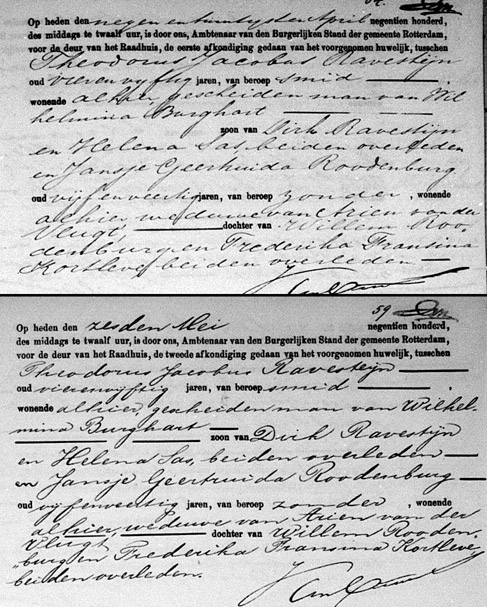 Op heden den negen en twintigsten April negentien honderd,
des middags te twaalf uur, is door ons, Ambtenaar van den Burgerlijken Stand der gemeente Rotterdam,
voor de deur van het Raadhuis, de eerste afkondiging gedaan van het voorgenomen huwelijk, tusschen
Theodorus Jacobus Ravesteijn
oud vierenvijftig jaren, van beroep smid
wonende alhier, gescheiden man van Wil
helmina Burghart
zoon van Dirk Ravestijn
en Helena Sas, beiden overleden
en Jansje Geertruida Roodenburg
oud vijfenveertig jaren, van beroep zonder, wonende
alhier, weduwe van Arien van der
Vlugt, dochter van Willem Roo-
denburg en Frederika Fransina
Kortleve, beiden overleden
59
Op heden den zesden Mei negentien honderd,
des middags te twaalf uur, is door ons, Ambtenaar van den Burgerlijken Stand der gemeente Rotterdam,
voor de deur van het Raadhuis, de tweede afkondiging gedaan van het voorgenomen huwelijk, tusschen
Theodorus Jacobus Ravesteijn
oud vierenvijftig jaren, van beroep smid
wonende alhier, gescheiden man van Wilhel-
mina Burghart zoon van Dirk Ravestijn
en Helena Sas, beiden overleden
en Jansje Geertruida Roodenburg
oud vijfenveertig jaren, van beroep zonder, wonende
alhier, weduwe van Arien van der
Vlugt, dochter van Willem Rooden-
burg en Frederika Fransina Kortleve,
beiden overleden.